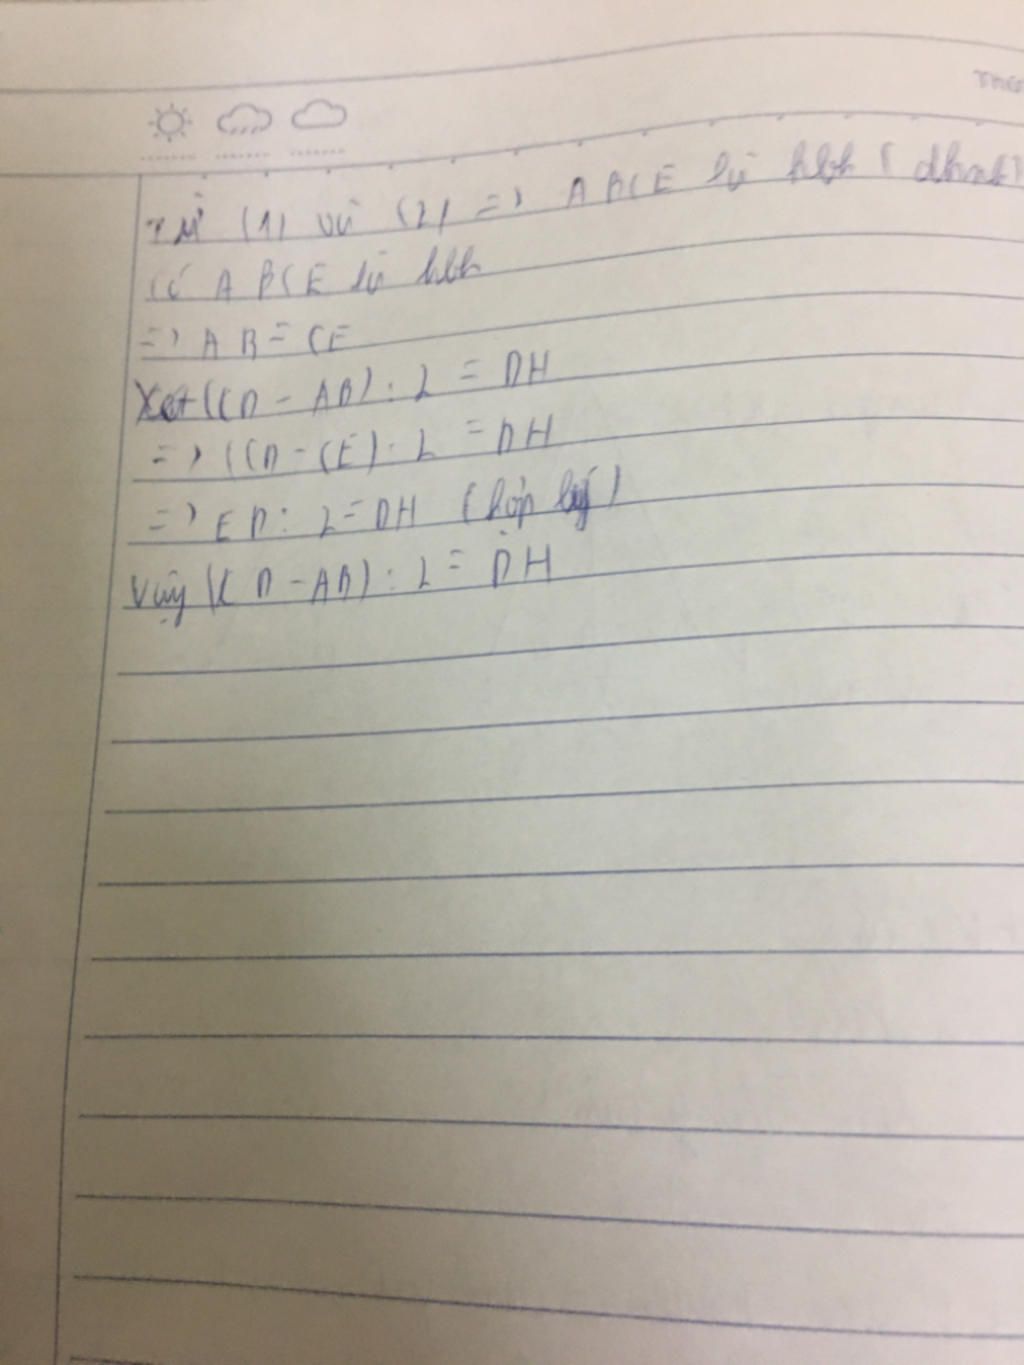 THEO
Từ (1) và (2) => ABCE là hbh (dhnb)
Có ABCE là hbh
=> AB = CE
Xét (CD - AB) : 2 = DH
=> (CD - CE) : 2 = DH
=> ED : 2 = DH (hợp lý)
Vậy (CD - AB) : 2 = DH